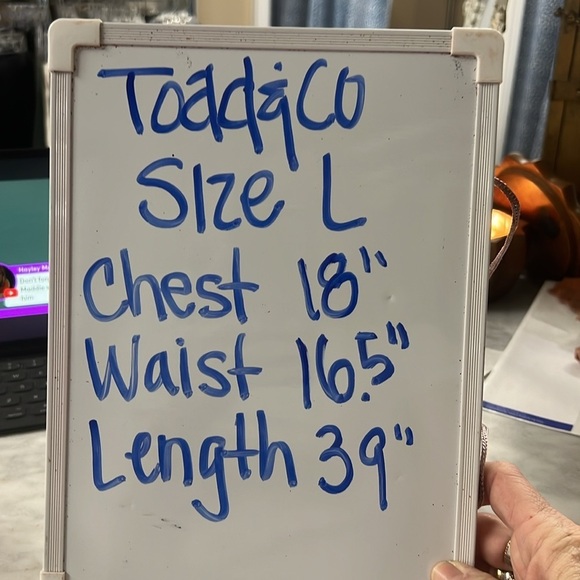 Toad&Co
Size L
Chest 18"
Waist 16.5"
Length 39"